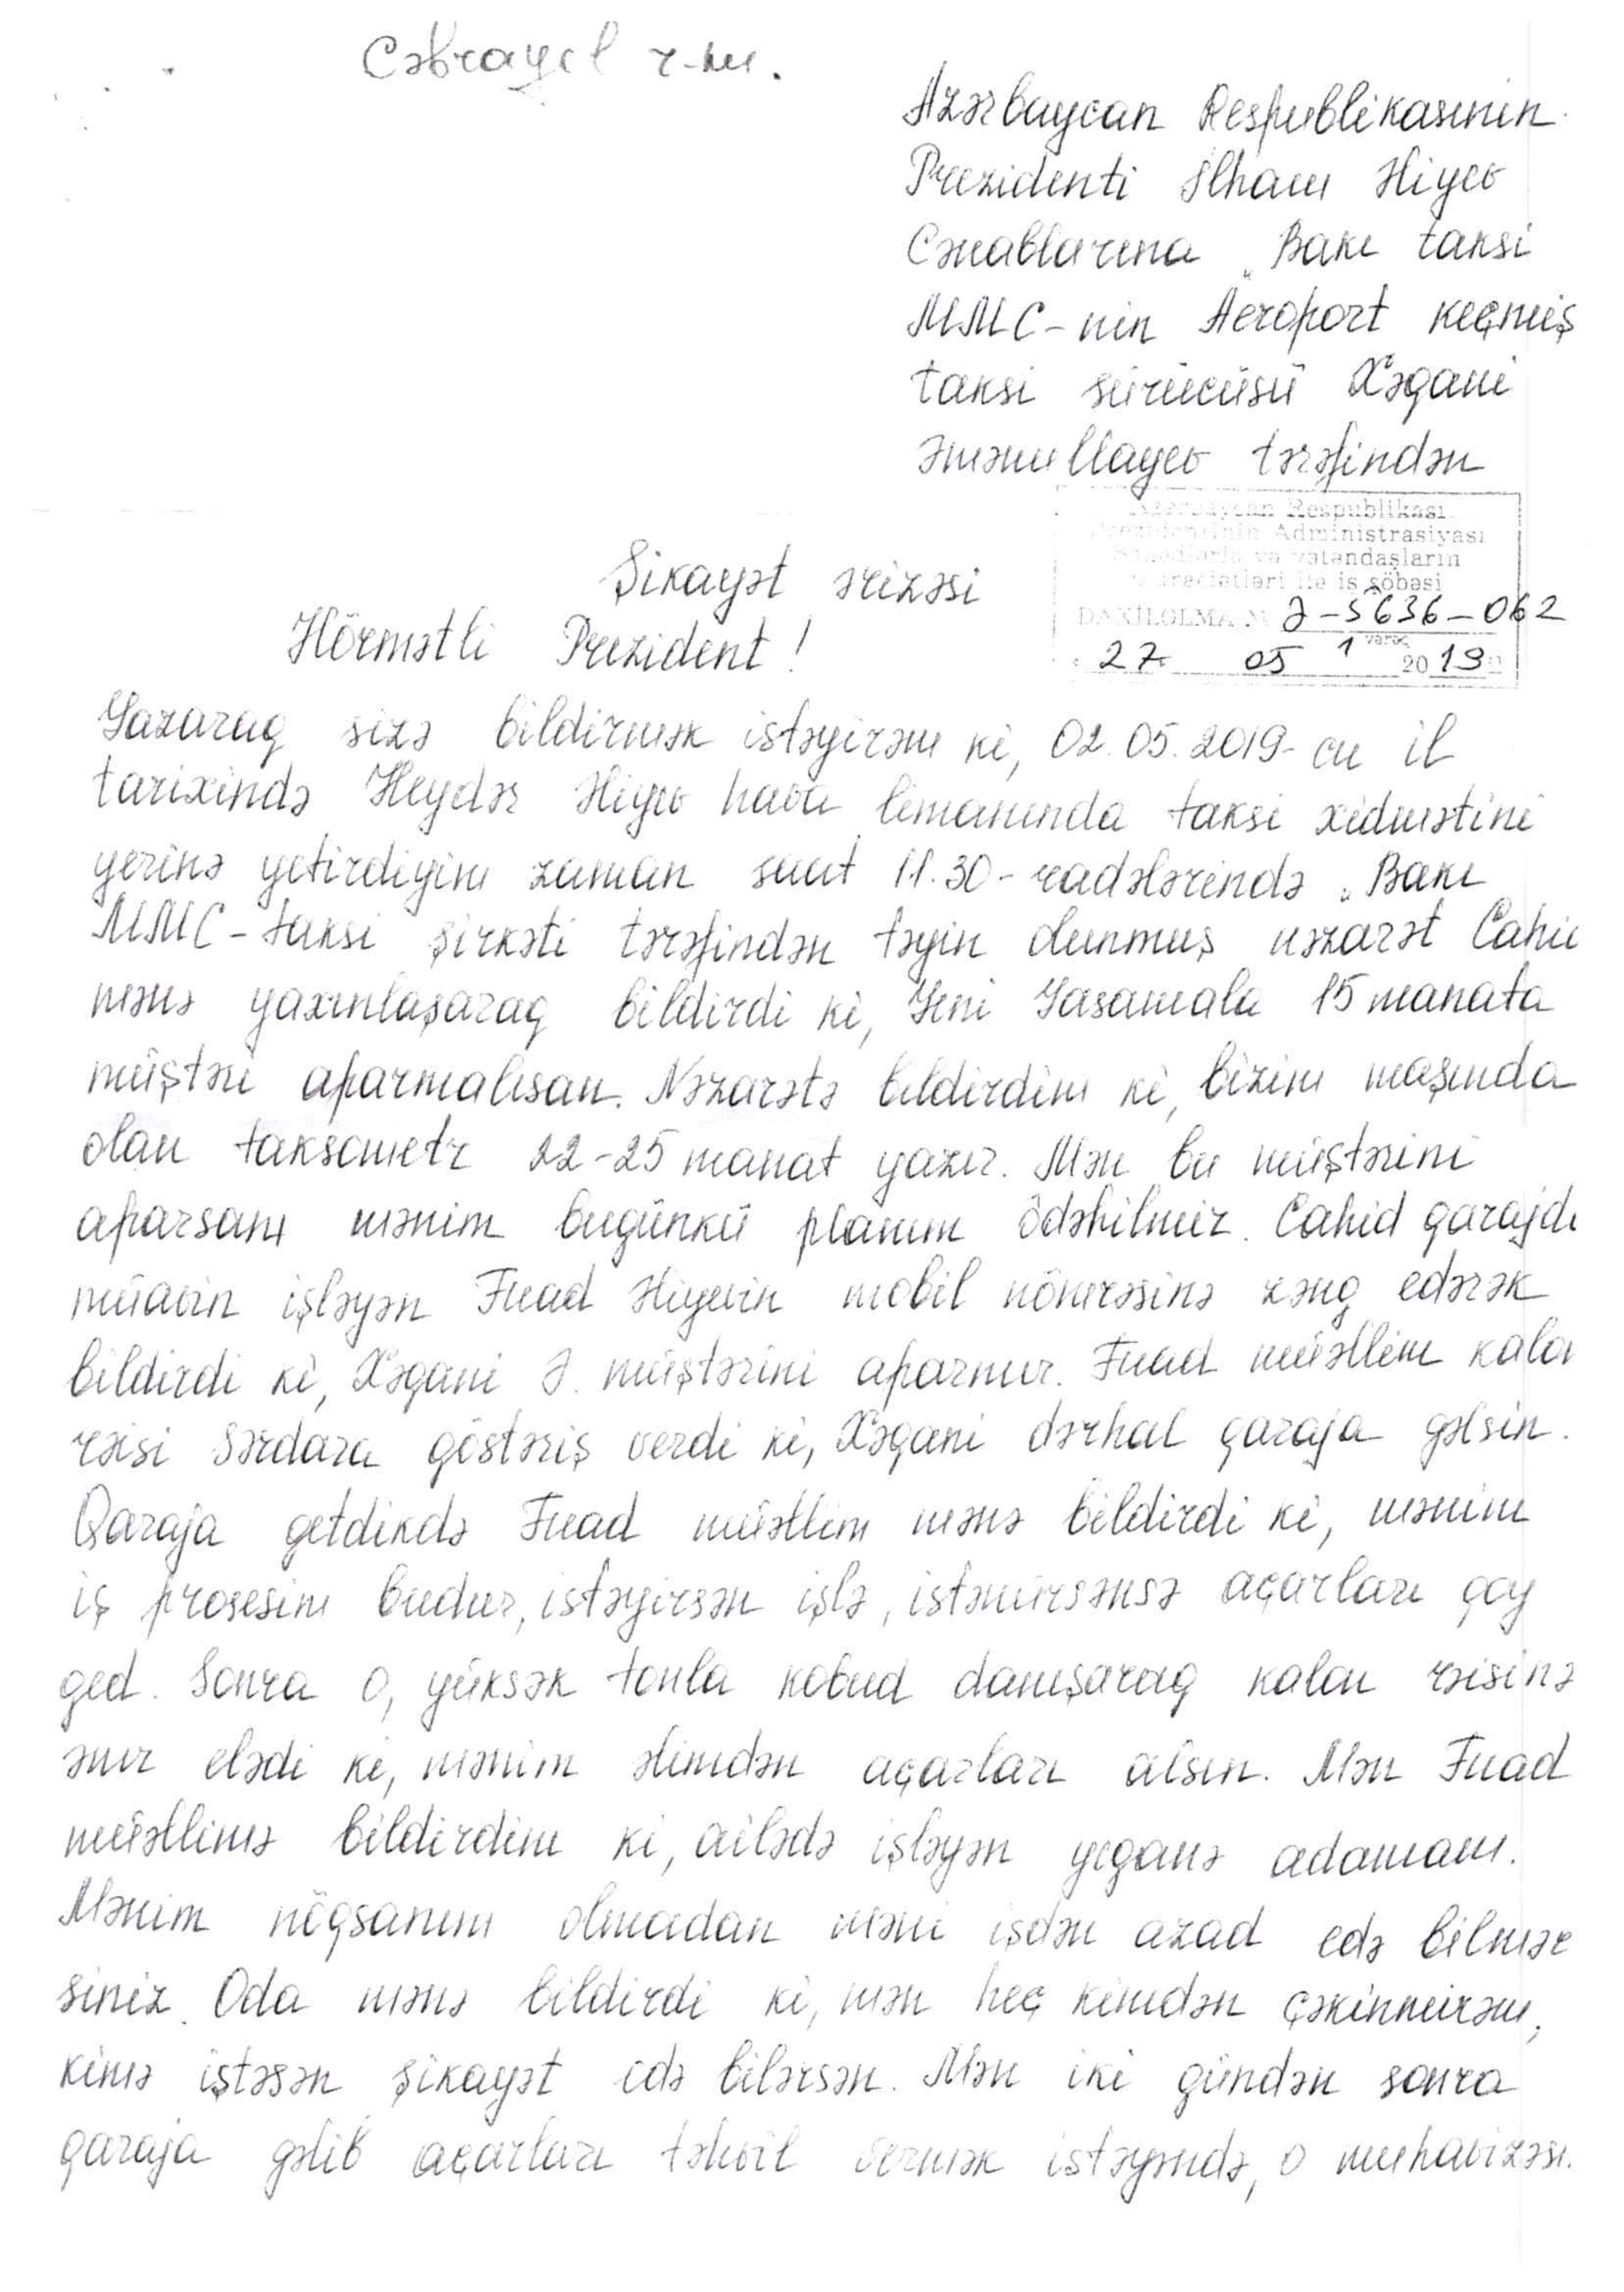 Cəbrayıl r-nu.
Azərbaycan Respublikasının
Prezidenti İlham Əliyev
Cənablarına „Bakı taksi
MMC-nin Aeroport keçmiş
taksi sürücüsü Xəqani
Əmənullayev tərəfindən
Azərbaycan Respublikası
Prezidentinin Administrasiyası
Sənədlərlə və vətəndaşların
müraciətləri ilə iş şöbəsi
DAXİLOLMA № Ə-5636-062
1 vərəq
27 05 2019
Şikayət ərizəsi
Hörmətli Prezident!
Yazaraq sizə bildirmək istəyirəm ki, 02.05.2019-cu il
tarixində Heydər Əliyev hava limanında taksi xidmətini
yerinə yetirdiyim zaman saat 11.30-radələrində „Bakı
MMC-taksi şirkəti tərəfindən təyin olunmuş nəzarət Cahi
mənə yaxınlaşaraq bildirdi ki, Yeni Yasamala 15 manata
müştəri aparmalısan. Nəzarətə bildirdim ki, bizim maşında
olan taksometr 22-25 manat yazır. Mən bu müştərini
aparsam mənim bugünkü planım ödəhilmir. Cahid qarajda
müavin işləyən Fuad Əliyevin mobil nömrəsinə zəng edərək
bildirdi ki, Xəqani Ə. müştərini aparmır. Fuad müəllim kalon
rəisi Sərdara göstəriş verdi ki, Xəqani dərhal qaraja gəlsin.
Qaraja getdikdə Fuad müəllim mənə bildirdi ki, mənim
iş prosesim budur, istəyirsən işlə, istəmirsənsə açarları qoy
ged. Sonra o, yüksək tonla kobud danışaraq kalon rəisinə
əmr elədi ki, mənim əlimdən açarları alsın. Mən Fuad
müəllimə bildirdim ki, ailədə işləyən yeganə adamam.
Mənim nöqsanım olmadan məni işdən azad edə bilməz
siniz. Oda mənə bildirdi ki, mən heç kimdən çəkinmirəm,
kimə iştəsən şikayət edə bilərsən. Mən iki gündən sonra
qaraja gəlib açarları təhvil vermək istəyəndə, o muhavizəsi.